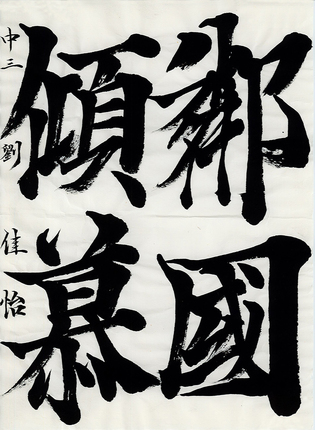 鄰國
傾慕
中三劉佳怡